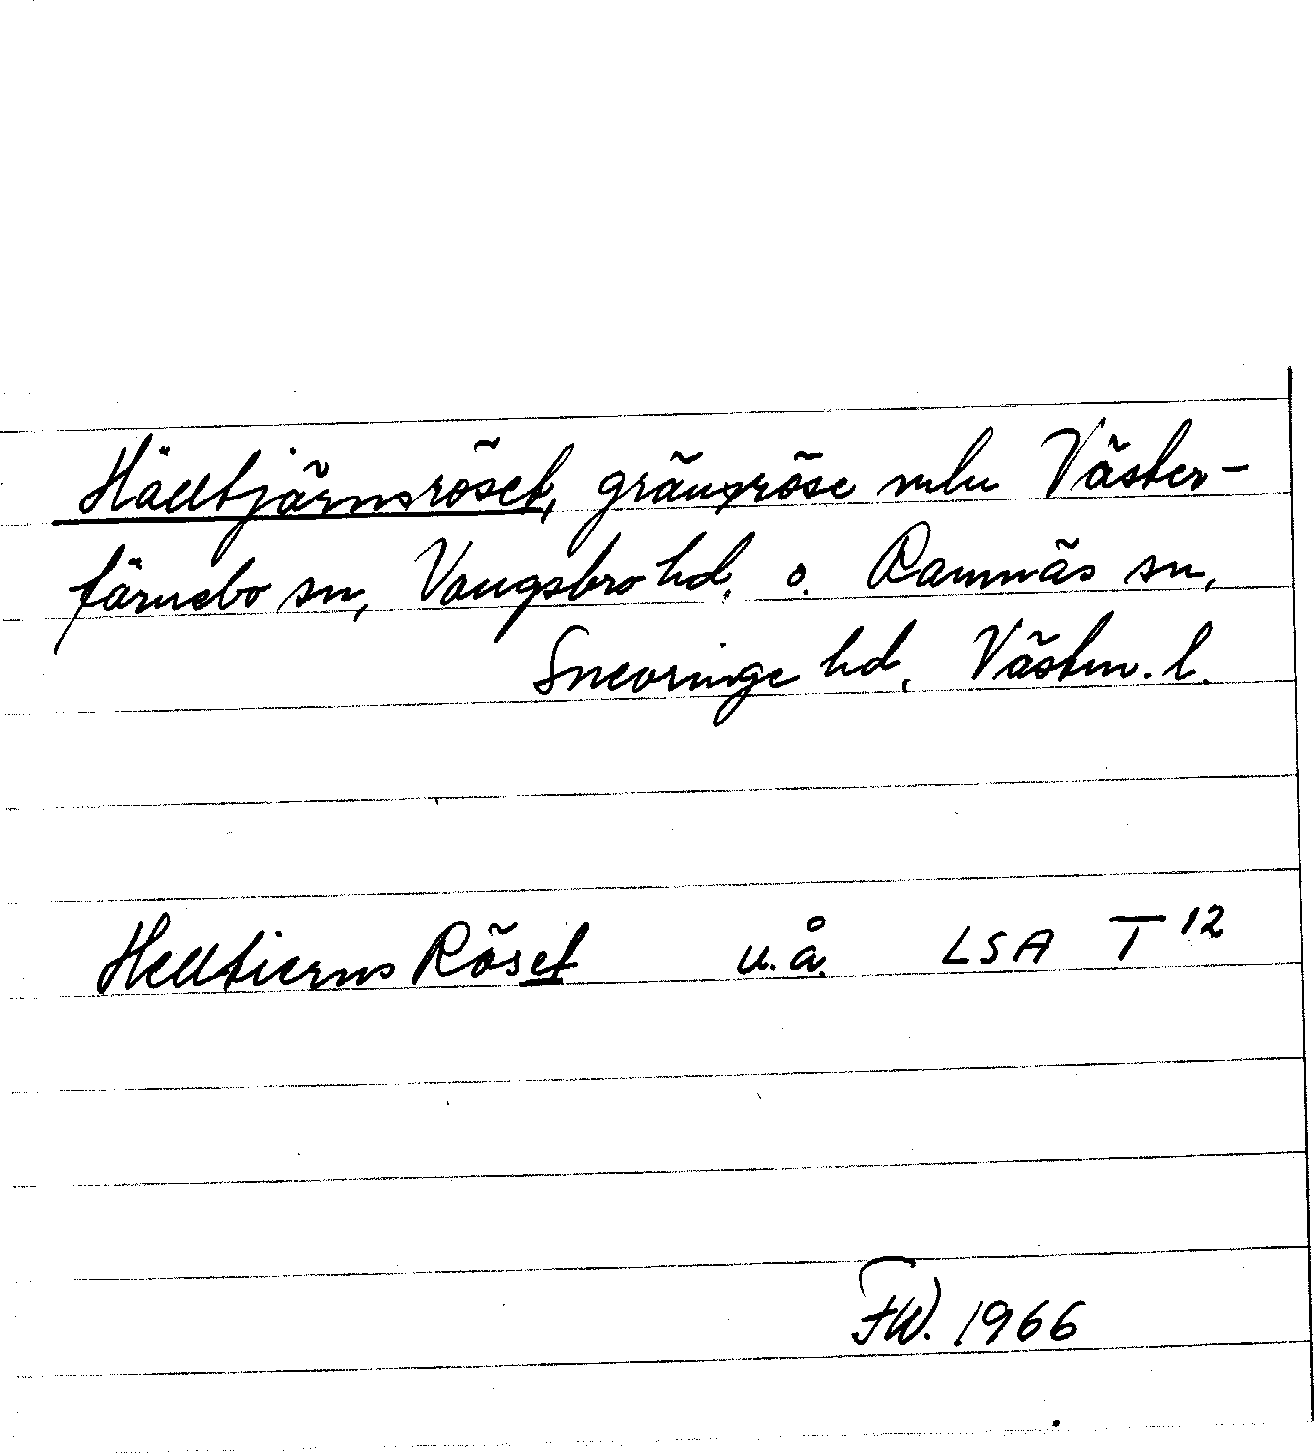 Hälltjärnsröset, gränsröse mlu Väster-
färnebo sn, Vangsbro hd, o. Ramnäs sn,
Snevringe hd, Västm. l.
Helltierns Röset u.å. LSA T 12
FW. 1966